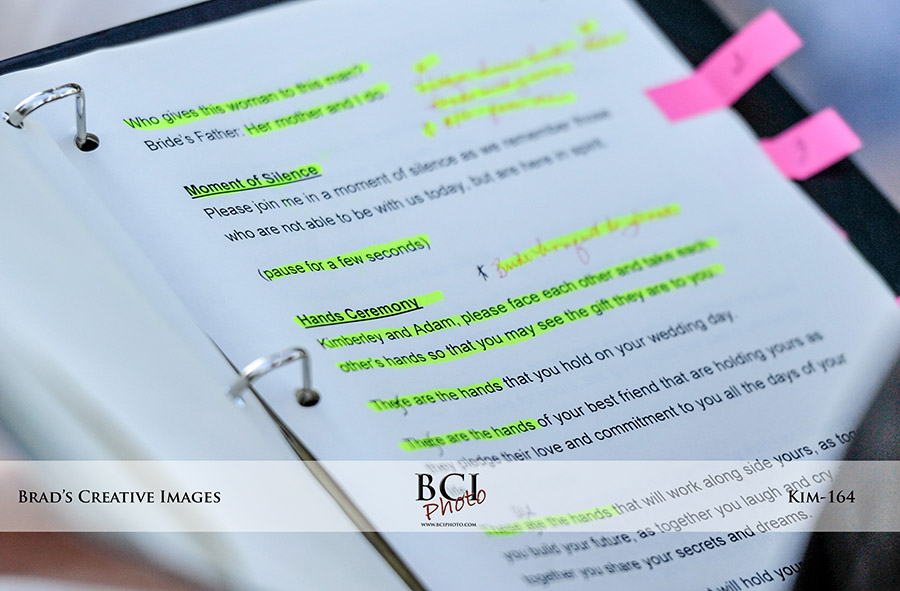 Who gives this woman to this man?
Bride's Father: Her mother and I do
Moment of Silence
Please join me in a moment of silence as we remember those
who are not able to be with us today, but are here in spirit.
(pause for a few seconds)
Hands Ceremony
Kimberley and Adam, please face each other and take each
other's hands so that you may see the gift they are to you.
There are the hands that you hold on your wedding day.
There are the hands of your best friend that are holding yours as
they pledge their love and commitment to you all the days of your
are the hands that will work along side yours, as together
you build your future, as together you laugh and cry
together you share your secrets and dreams.
will hold your
Brad's Creative Images
BCI
Photo
www.bciphoto.com
Kim-164